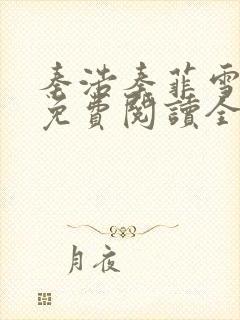 秦浩秦菲雪
免費閱讀全
月夜